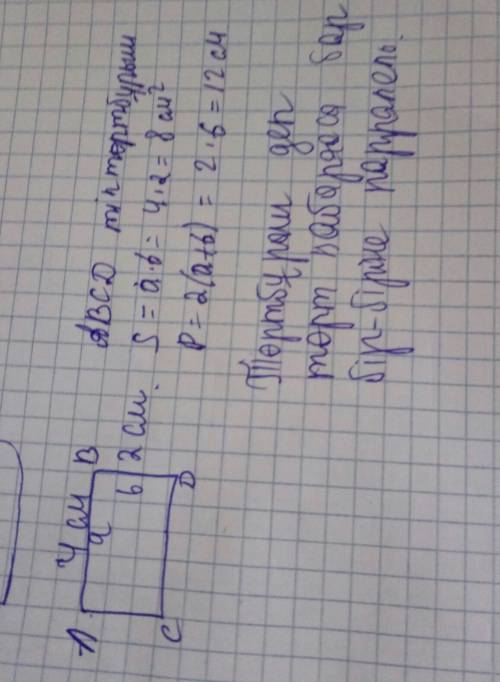 A 4 см B
a
b 2 см.
C D
ABCD тіктөртбұрыш
S = a·b = 4·2 = 8 см²
P = 2(a+b) = 2·6 = 12 см
Төртбұрыш деп
төрт қабырғасы бар
бір-біріне параллель.